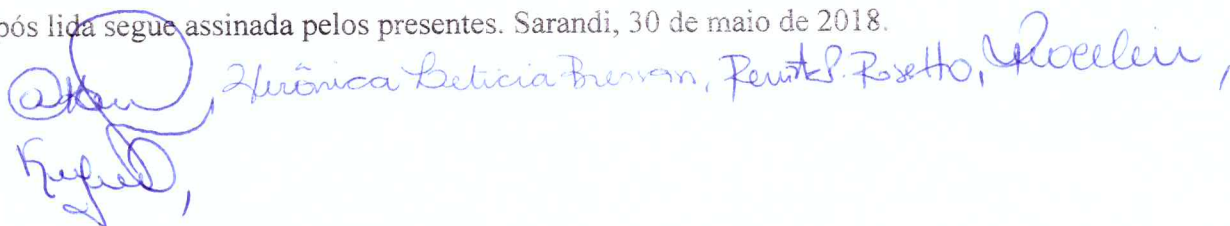 pós lida segue assinada pelos presentes. Sarandi, 30 de maio de 2018.
, Verônica Leticia Bressan, Renata P. Rosetto,